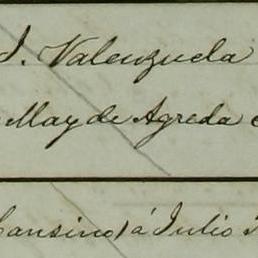 J. Valenzuela
May de Agreda
Cansino) á Julio